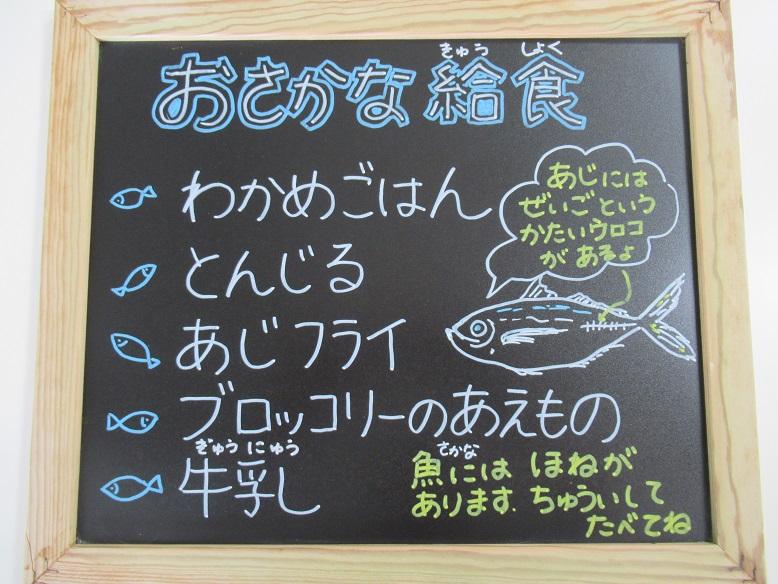 きゅう しょく
おさかな給食
わかめごはん
とんじる
あじフライ
ブロッコリーのあえもの
ぎゅうにゅう
牛乳
あじには
ぜいごという
かたいウロコ
があるよ
さかな
魚には ほねが
あります. ちゅういして
たべてね